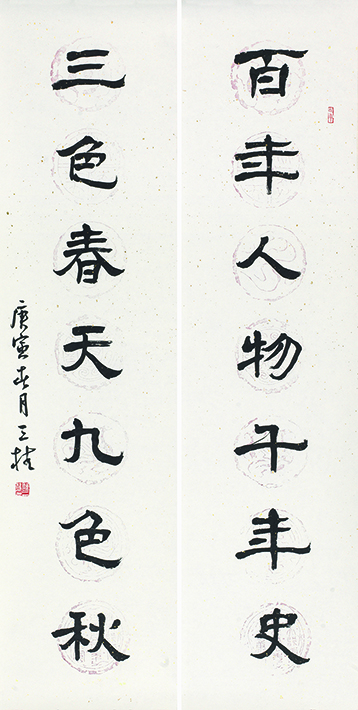 百年人物千年史
三色春天九色秋
庚寅春月三桂